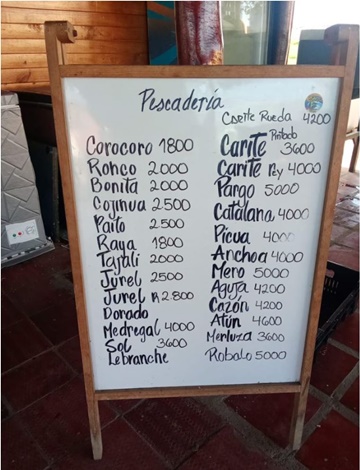 Pescadería
Corocoro 1800
Ronco 2000
Bonita 2000
Cojinua 2500
Paito 2500
Raya 1800
Tajali 2000
Jurel 2500
Jurel n 2800
Dorado
Medregal 4000
Sol 3600
Lebranche
Carite Rueda 4200
Carite Picado 3600
Carite Rey 4000
Pargo 5000
Catalana 4000
Picua 4000
Anchoa 4000
Mero 5000
Aguja 4200
Cazón 4200
Atún 4600
Merluza 3600
Robalo 5000